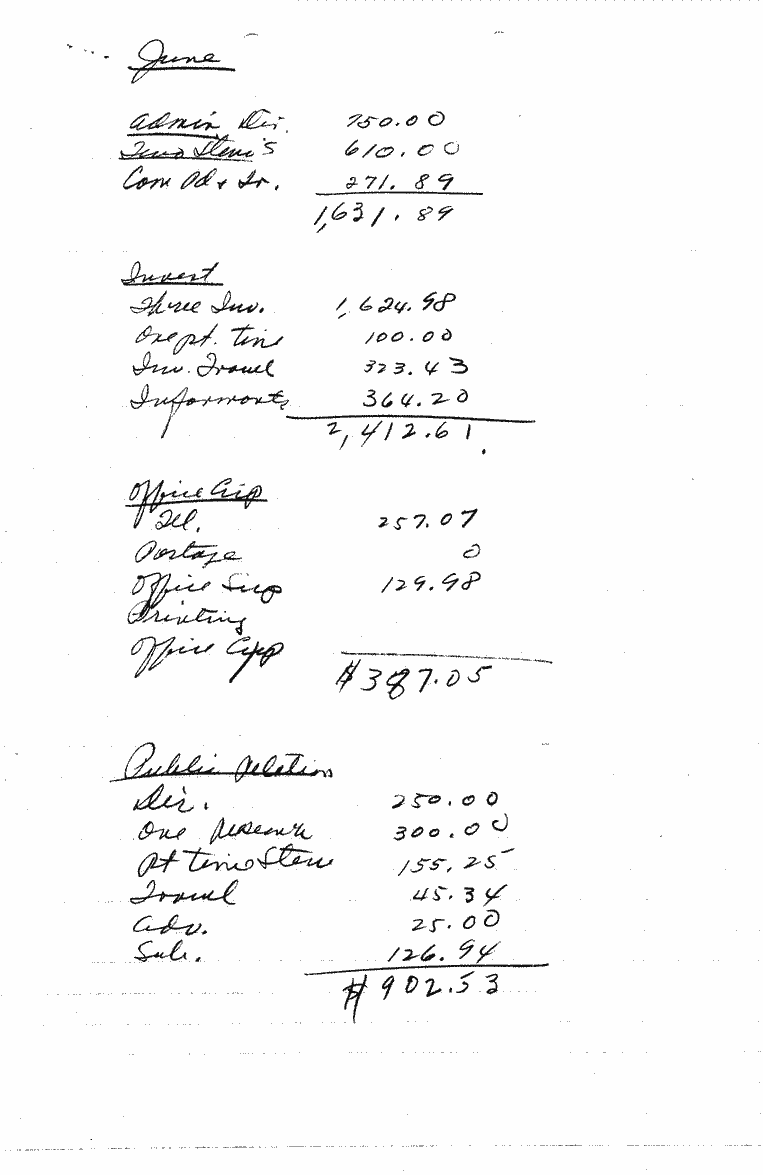 June
Admin. Dir. 750.00
Two Steno's 610.00
Com Ad & Tr. 271.89
1,631.89
Invest
Three Inv. 1,624.98
One pt. time 100.00
Inv. Travel 323.43
Informants 364.20
2,412.61
Office Exp
Tel. 257.07
Postage 0
Office Sup 129.98
Printing
Office Exp
$387.05
Public Relation
Dir. 250.00
One Research 300.00
Pt Time Steno 155.25
Travel 45.34
Adv. 25.00
Sub. 126.94
$902.53